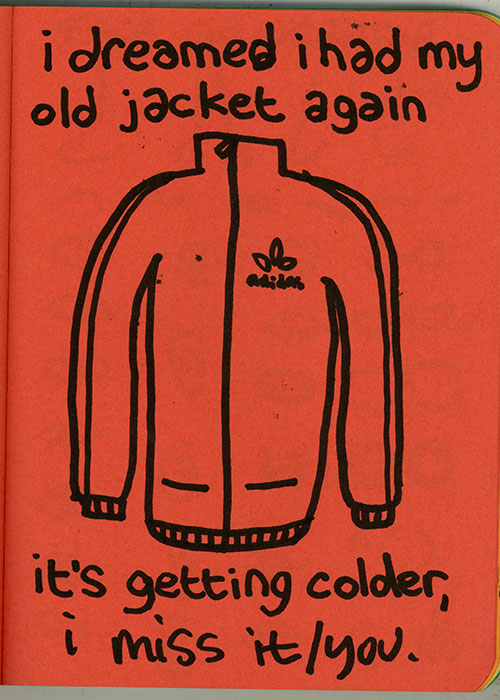 i dreamed i had my
old jacket again
adidas
it's getting colder,
i miss it/you.